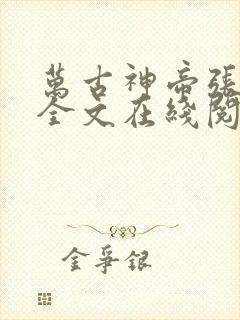 萬古神帝張
全文在綫閱
金爭銀